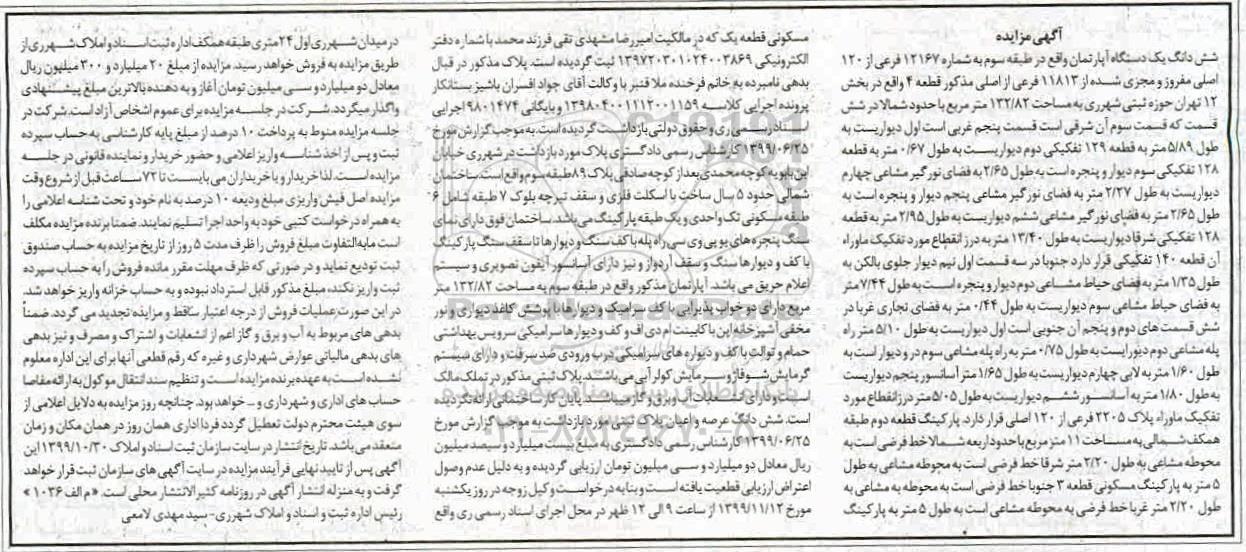 آگهی مزایده
شش دانگ یک دستگاه آپارتمان واقع در طبقه سوم به شماره ۱۲۱۶۷ فرعی از ۱۲۰
اصلی مفروز و مجزی شده از ۱۱۸۱۳ فرعی از اصلی مذکور قطعه ۴ واقع در بخش
۱۲ تهران حوزه ثبتی شهرری به مساحت ۱۳۲/۸۲ متر مربع با حدود شمالا در شش
قسمت که قسمت سوم آن شرقی است قسمت پنجم غربی است اول دیواریست به
طول ۵/۸۹ متر به قطعه ۱۲۹ تفکیکی دوم دیواریست به طول ۰/۶۷ متر به قطعه
۱۲۸ تفکیکی سوم دیوار و پنجره است به طول ۲/۶۵ به فضای نورگیر مشاعی چهارم
دیواریست به طول ۲/۲۷ متر به فضای نورگیر مشاعی پنجم دیوار و پنجره است به
طول ۲/۶۵ متر به فضای نورگیر مشاعی ششم دیواریست به طول ۲/۹۵ متر به قطعه
۱۲۸ تفکیکی شرقا دیواریست به طول ۱۳/۴۰ متر به درز انقطاع مورد تفکیک ماوراء
آن قطعه ۱۴۰ تفکیکی قرار دارد جنوبا در سه قسمت اول نیم دیوار جلوی بالکن به
طول ۱/۳۵ متر به فضای حیاط مشاعی دوم دیوار و پنجره است به طول ۷/۴۴ متر
به فضای حیاط مشاعی سوم دیواریست به طول ۰/۴۴ متر به فضای تجاری غربا در
شش قسمت های دوم و پنجم آن جنوبی است اول دیواریست به طول ۵/۱۰ متر راه
پله مشاعی دوم دیواریست به طول ۰/۷۵ متر به راه پله مشاعی سوم در و دیوار است به
طول ۱/۶۰ متر به لابی چهارم دیواریست به طول ۱/۶۵ متر آسانسور پنجم دیواریست
به طول ۱/۸۰ متر به آسانسور ششم دیواریست به طول ۵/۰۵ متر درز انقطاع مورد
تفکیک ماوراء پلاک ۲۲۰۵ فرعی از ۱۲۰ اصلی قرار دارد. پارکینگ قطعه دوم طبقه
همکف شمالی به مساحت ۱۱ متر مربع با حدود اربعه شمالا خط فرضی است به
محوطه مشاعی به طول ۲/۲۰ متر شرقا خط فرضی است به محوطه مشاعی به طول
۵ متر به پارکینگ مسکونی قطعه ۳ جنوبا خط فرضی است به محوطه مشاعی به
طول ۲/۲۰ متر غربا خط فرضی به محوطه مشاعی است به طول ۵ متر به پارکینگ
مسکونی قطعه یک که در مالکیت امیررضا مشهدی تقی فرزند محمد با شماره دفتر
الکترونیکی ۱۳۹۷۲۰۳۰۱۰۲۴۰۰۳۸۶۹ ثبت گردیده است. پلاک مذکور در قبال
بدهی نامبرده به خانم فرخنده ملا قنبر با وکالت آقای جواد افسران باشیز بستانکار
پرونده اجرایی کلاسه ۱۳۹۸۰۴۰۰۱۱۱۲۰۰۱۱۵۹ و بایگانی ۹۸۰۱۴۷۴ اجرایی
اسناد رسمی ری و حقوق دولتی بازداشت گردیده است. به موجب گزارش مورخ
۱۳۹۹/۰۶/۲۵ کارشناس رسمی دادگستری پلاک مورد بازداشت در شهرری خیابان
ابن بابویه کوچه محمدی بعد از کوچه صادقی پلاک ۸۹ طبقه سوم واقع است. ساختمان
شمالی حدود ۵ سال ساخت با اسکلت فلزی و سقف تیرچه بلوک ۷ طبقه شامل ۶
طبقه مسکونی تک واحدی و یک طبقه پارکینگ می باشد. ساختمان فوق دارای نمای
سنگ پنجره های یو پی وی سی راه پله با کف سنگ و دیوارها تا سقف سنگ پارکینگ
با کف و دیوارها سنگ و سقف آردواز و نیز دارای آسانسور آیفون تصویری و سیستم
اعلام حریق می باشد. آپارتمان مذکور واقع در طبقه سوم به مساحت ۱۳۲/۸۲ متر
مربع دارای دو خواب پذیرایی با کف سرامیک و دیوارها با پوشش کاغذ دیواری و نور
مخفی آشپزخانه اپن با کابینت ام دی اف و کف و دیوارها سرامیکی سرویس بهداشتی
حمام و توالت با کف و دیواره های سرامیکی درب ورودی ضد سرقت و دارای سیستم
گرمایش شوفاژ و سرمایش کولر آبی می باشند. پلاک ثبتی مذکور در تملک مالک
است و دارای انشعابات آب و برق و گاز میباشد. پایان کار ساختمانی ارائه نگردیده
است. شش دانگ عرصه و اعیان پلاک ثبتی مورد بازداشت به موجب گزارش مورخ
۱۳۹۹/۰۶/۲۵ کارشناس رسمی دادگستری به مبلغ بیست میلیارد و سیصد میلیون
ریال معادل دو میلیارد و سی میلیون تومان ارزیابی گردیده و به دلیل عدم وصول
اعتراض ارزیابی قطعیت یافته است و بنا به درخواست وکیل زوجه در روز یکشنبه
مورخ ۱۳۹۹/۱۱/۱۲ از ساعت ۹ الی ۱۲ ظهر در محل اجرای اسناد رسمی ری واقع
در میدان شهرری اول ۲۴ متری طبقه همکف اداره ثبت اسناد و املاک شهرری از
طریق مزایده به فروش خواهد رسید. مزایده از مبلغ ۲۰ میلیارد و ۳۰۰ میلیون ریال
معادل دو میلیارد و سی میلیون تومان آغاز و به دهنده بالاترین مبلغ پیشنهادی
واگذار میگردد. شرکت در جلسه مزایده برای عموم اشخاص آزاد است. شرکت در
جلسه مزایده منوط به پرداخت ۱۰ درصد از مبلغ پایه کارشناسی به حساب سپرده
ثبت و پس از اخذ شناسه واریز اعلامی و حضور خریدار و نماینده قانونی در جلسه
مزایده است. لذا خریدار و یا خریداران می بایست تا ۷۲ ساعت قبل از شروع وقت
مزایده اصل فیش واریزی مبلغ ودیعه ۱۰ درصد به نام خود و تحت شناسه اعلامی را
به همراه درخواست کتبی خود به واحد اجرا تسلیم نمایند. ضمنا برنده مزایده مکلف
است مابه‌التفاوت مبلغ فروش را ظرف مدت ۵ روز از تاریخ مزایده به حساب صندوق
ثبت تودیع نماید و در صورتی که ظرف مهلت مقرر مانده فروش را به حساب سپرده
ثبت واریز نکند، مبلغ مذکور قابل استرداد نبوده و به حساب خزانه واریز خواهد شد.
در این صورت عملیات فروش از درجه اعتبار ساقط و مزایده تجدید می گردد. ضمناً
بدهی های مربوط به آب و برق و گاز اعم از انشعابات و اشتراک و مصرف و نیز بدهی
های بدهی مالیاتی عوارض شهرداری و غیره که رقم قطعی آنها برای این اداره معلوم
نشده است به عهده برنده مزایده است و تنظیم سند انتقال موکول به ارائه مفاصا
حساب های اداری و شهرداری و ... خواهد بود. چنانچه روز مزایده به دلایل اعلامی از
سوی هیئت محترم دولت تعطیل گردد فردا اداری همان روز در همان مکان و زمان
منعقد می باشد. تاریخ انتشار در سایت سازمان ثبت اسناد و املاک ۱۳۹۹/۱۰/۳۰ این
آگهی پس از تایید نهایی فرآیند مزایده در سایت آگهی های سازمان ثبت قرار خواهد
گرفت و به منزله انتشار آگهی در روزنامه کثیرالانتشار محلی است. «م الف ۱۰۲۶»
رئیس اداره ثبت و اسناد و املاک شهرری - سید مهدی لامعی